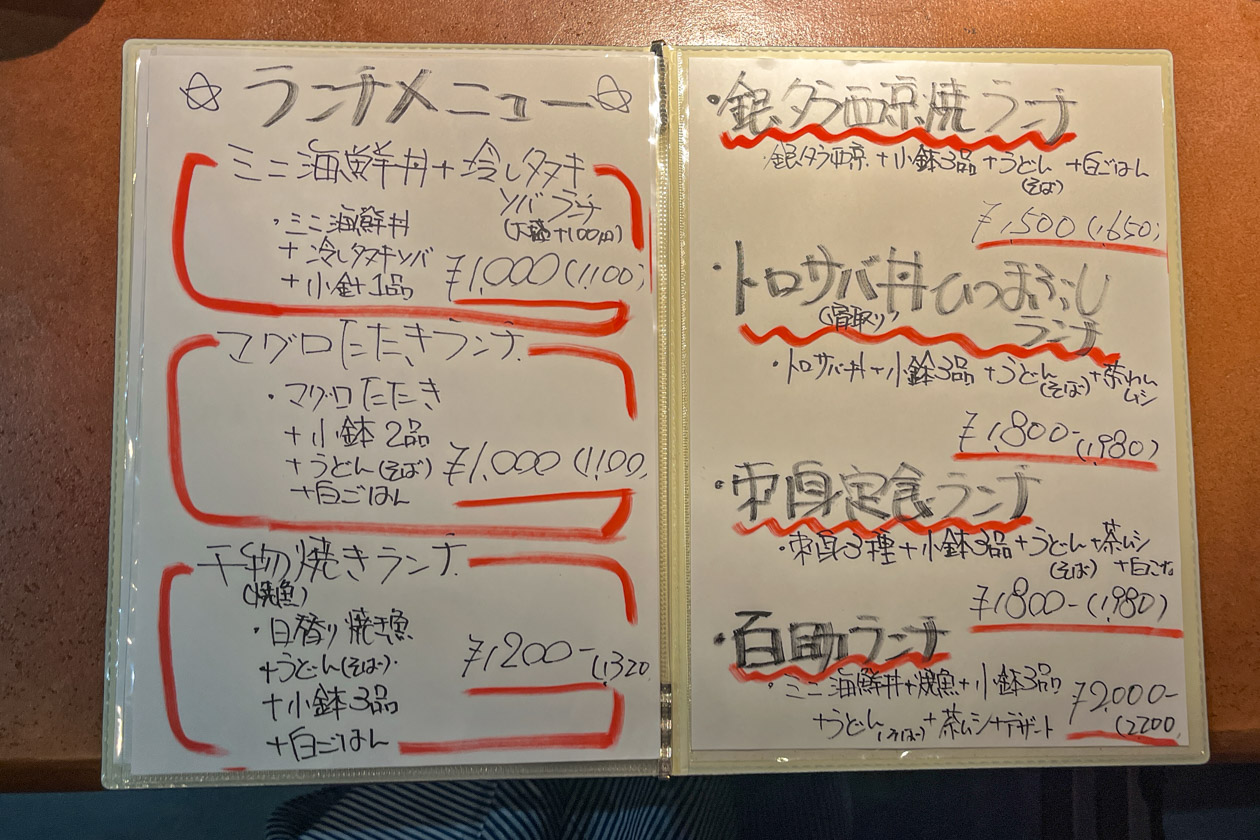 ☆ ランチメニュー ☆
ミニ海鮮丼+冷しタヌキ
ソバランチ
(大盛+100円)
・ミニ海鮮丼
+冷しタヌキソバ
+小鉢1品
¥1,000(1,100)
マグロたたきランチ
・マグロたたき
+小鉢2品
+うどん(そば)
+白ごはん
¥1,000(1,100
干物焼きランチ
(焼魚)
・日替り焼き魚
+うどん(そば)
+小鉢3品
+白ごはん
¥1,200-
(1,320
・銀タラ西京焼ランチ
・銀タラ西京+小鉢3品+うどん+白ごはん
(そば)
¥1,500(1,650)
・トロサバ丼ひつまぶし
ランチ
・トロサバ丼+小鉢3品+うどん+茶わん
(そば)
ムシ
¥1,800-(1,980)
・刺身定食ランチ
・刺身3種+小鉢3品+うどん+茶ムシ
(そば)
¥1,800-(1,980)
・百助ランチ
・ミニ海鮮丼+焼魚+小鉢3品
+うどん(そば)+茶ムシ+デザート
¥2,000-
(2200